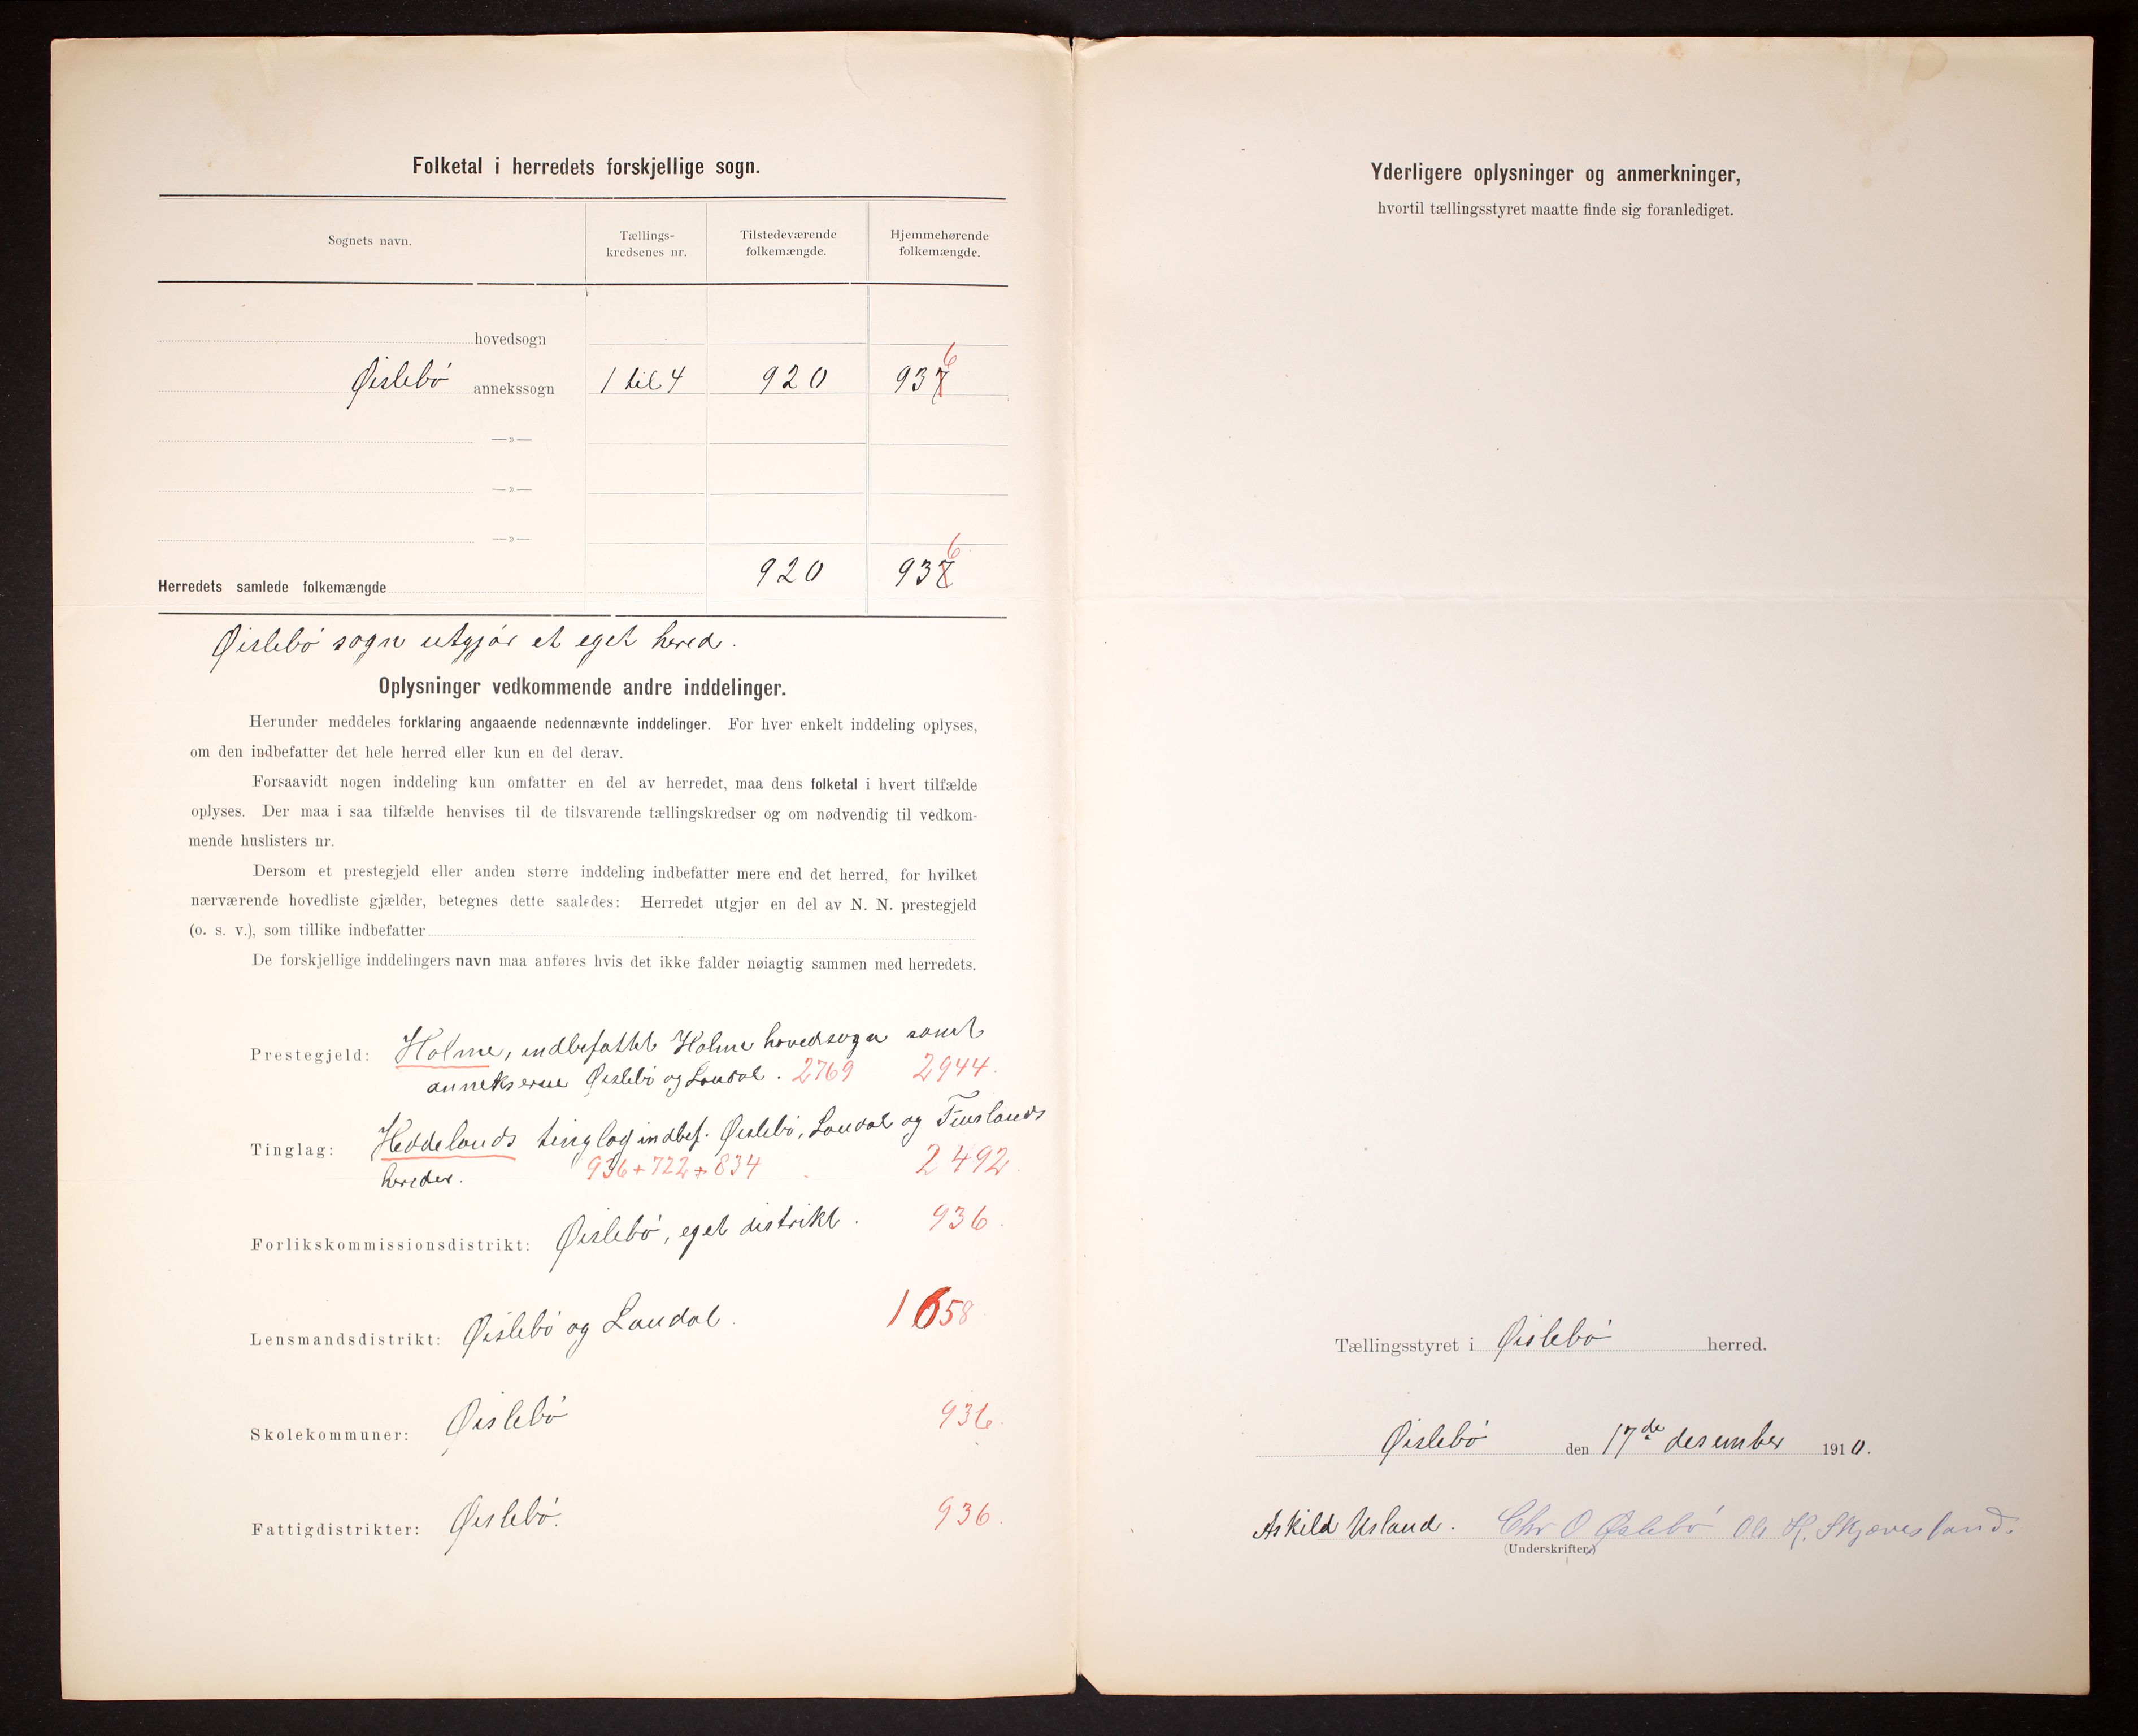 Folketal i herredets forskjellige sogn.
Sognets navn. Tællings-kredsenes nr. Tilstedeværende folkemængde. Hjemmehørende folkemængde.
hovedsogn
6
Øislebö annekssogn 1 til 4 920 937
—»—
—»—
—»—
6
Herredets samlede folkemængde 920 937
Øislebö sogn utgjör et eget hered.
Oplysninger vedkommende andre inddelinger.
Herunder meddeles forklaring angaaende nedennævnte inddelinger. For hver enkelt inddeling oplyses,
om den indbefatter det hele herred eller kun en del derav.
Forsaavidt nogen inddeling kun omfatter en del av herredet, maa dens folketal i hvert tilfælde
oplyses. Der maa i saa tilfælde henvises til de tilsvarende tællingskredser og om nødvendig til vedkom-
mende huslisters nr.
Dersom et prestegjeld eller anden større inddeling indbefatter mere end det herred, for hvilket
nærværende hovedliste gjælder, betegnes dette saaledes: Herredet utgjør en del av N. N. prestegjeld
(o. s. v.), som tillike indbefatter
De forskjellige inddelingers navn maa anføres hvis det ikke falder nøiagtig sammen med herredets.
Prestegjeld: Holme, indbefattet Holme hovedsogn samt
annekserne Øislebö og Laudal. 2769 2944.
Tinglag: Heddelands tinglag indbef. Øislebö, Laudal og Finslands
hereder. 936+722+834 2492.
Forlikskommissionsdistrikt: Øislebö, eget distrikt. 936.
Lensmandsdistrikt: Øislebö og Laudal. 1658.
Skolekommuner: Øislebö 936.
Fattigdistrikter: Øislebö. 936.
Yderligere oplysninger og anmerkninger,
hvortil tællingsstyret maatte finde sig foranlediget.
Tællingsstyret i Øislebö herred.
Øislebö den 17de desember 1910.
Askild Usland. Chr O Øslebö Ole H. Skjævesland.
(Underskrifter.)